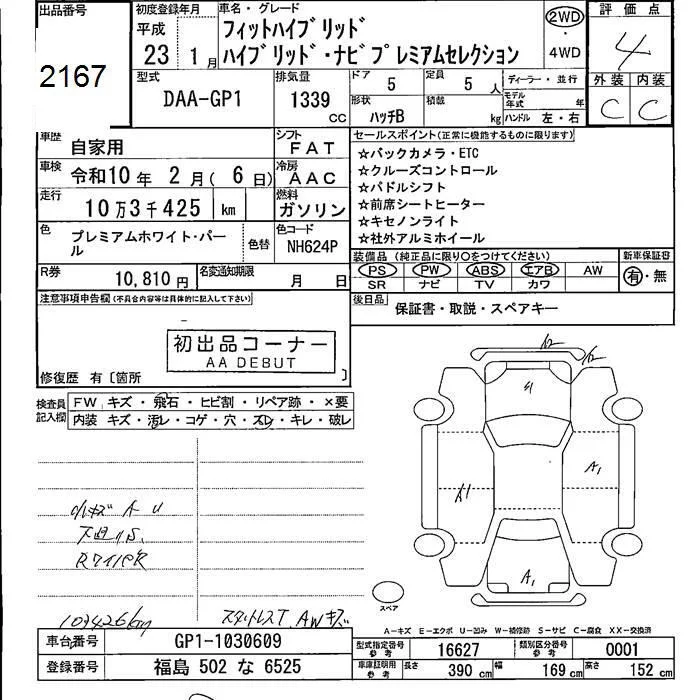 出品番号
2167
初度登録年月
平成
23 1月
車名・グレード
フィットハイブリッド
ハイブリッド・ナビプレミアムセレクション
2WD
・
4WD
評価点
4
外装 内装
C C
型式
DAA-GP1
排気量
1339 CC
ドア 5
定員 5 人
ディーラー・並行
形状
ハッチB
積載 kg
モデル年式 年
ハンドル 左・右
車歴
自家用
シフト
FAT
車検
令和10年 2月( 6日)
冷房
AAC
走行
10万3千425 km
燃料
ガソリン
色
プレミアムホワイト・パール
色替
色コード
NH624P
R券
10,810円
名変通知期限
月 日
セールスポイント(正常に機能するものに限ります)
☆バックカメラ・ETC
☆クルーズコントロール
☆パドルシフト
☆前席シートヒーター
☆キセノンライト
☆社外アルミホイール
装備品 (純正品に限り○をつけてください)
PS PW ABS エアB AW
SR ナビ TV カワ
新車保証書
有・無
後日品
保証書・取説・スペアキー
注意事項申告欄(不具合内容等は具体的に記入して下さい)
初出品コーナー
AA DEBUT
修復歴 有〔箇所 〕
検査員記入欄
FW キズ・飛石・ヒビ割・リペア跡・×要
内装 キズ・汚レ・コゲ・穴・スレ・キレ・破レ
A1
A1
A1
RワイパR
103426km
スタットレスT. AWキズ
スペア
A-キズ E-エクボ U-凹み W-補修跡 S-サビ C-腐食 XX-交換済
車台番号
GP1-1030609
登録番号
福島 502 な 6525
型式指定番号 参考
16627
類別区分番号 参考
0001
車庫証明用 参考
長さ 390 cm
幅 169 cm
高さ 152 cm